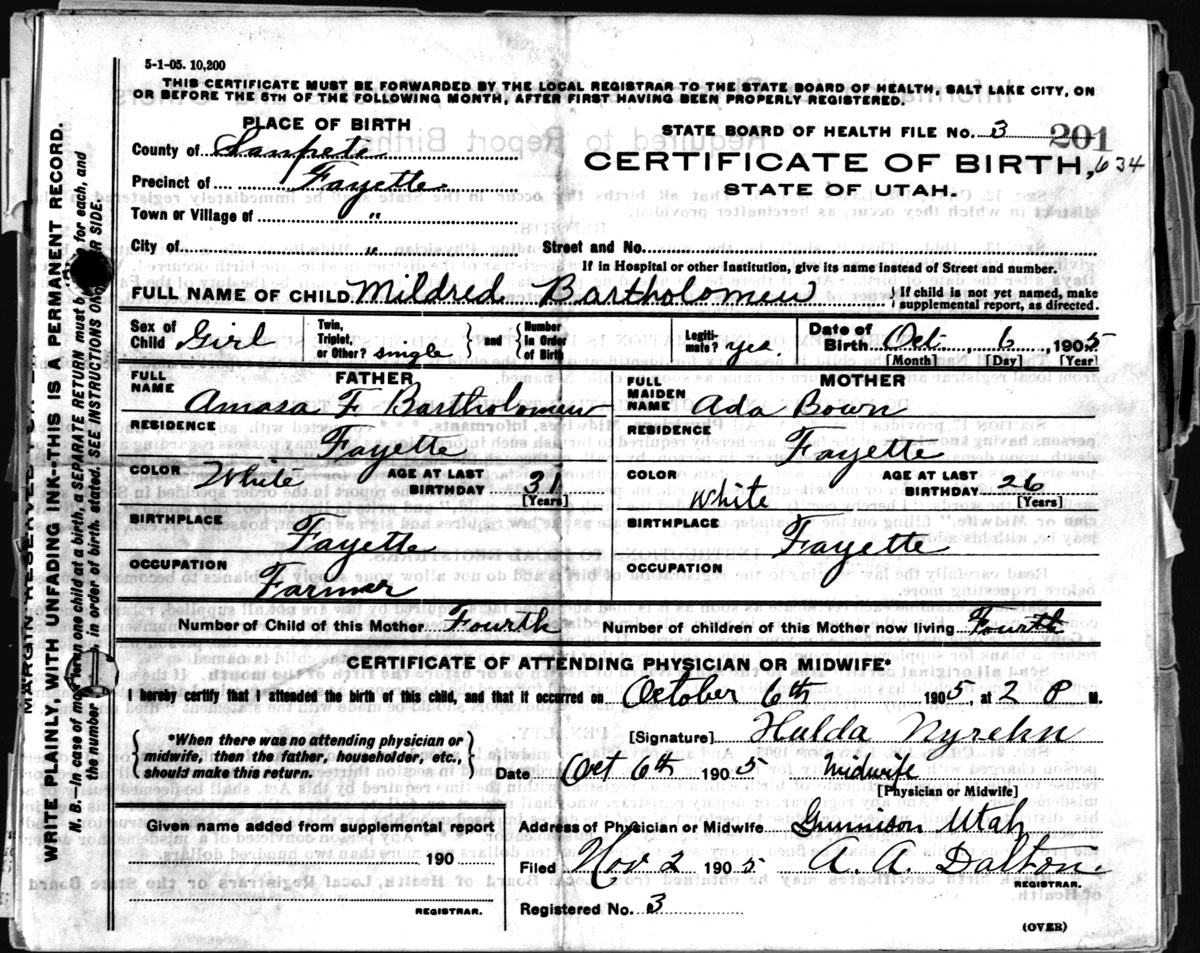 5-1-05. 10,200
THIS CERTIFICATE MUST BE FORWARDED BY THE LOCAL REGISTRAR TO THE STATE BOARD OF HEALTH, SALT LAKE CITY, ON
OR BEFORE THE 5TH OF THE FOLLOWING MONTH, AFTER FIRST HAVING BEEN PROPERLY REGISTERED.
PLACE OF BIRTH
County of Sanpete
Precinct of Fayette
Town or Village of "
City of "
STATE BOARD OF HEALTH FILE No. 3 201
CERTIFICATE OF BIRTH, 634
STATE OF UTAH.
Street and No.
If in Hospital or other Institution, give its name instead of Street and number.
FULL NAME OF CHILD Mildred Bartholomew } If child is not yet named, make
supplemental report, as directed.
Sex of Child Girl
Twin, Triplet, or Other? single } and { Number in Order of Birth
Legiti- mate? yes.
Date of Birth Oct. 6, 1905
[Month] [Day] [Year]
FATHER
FULL NAME Amasa F. Bartholomew
RESIDENCE Fayette
COLOR White AGE AT LAST BIRTHDAY 31
[Years]
BIRTHPLACE Fayette
OCCUPATION Farmer
MOTHER
FULL MAIDEN NAME Ada Bown
RESIDENCE Fayette
COLOR White AGE AT LAST BIRTHDAY 26
[Years]
BIRTHPLACE Fayette
OCCUPATION
Number of Child of this Mother Fourth Number of children of this Mother now living Fourth
CERTIFICATE OF ATTENDING PHYSICIAN OR MIDWIFE*
I hereby certify that I attended the birth of this child, and that it occurred on October 6th 1905, at 2 P M.
*When there was no attending physician or
midwife, then the father, householder, etc.,
should make this return.
[Signature] Hulda
Date Oct 6th 1905 Midwife
[Physician or Midwife]
Given name added from supplemental report
190
REGISTRAR.
Address of Physician or Midwife Gunnison Utah
Filed Nov 2 1905 A. A. Dalton.
REGISTRAR.
Registered No. 3
(OVER)
WRITE PLAINLY, WITH UNFADING INK--THIS IS A PERMANENT RECORD.
N. B.—In case of more than one child at a birth, a SEPARATE RETURN must be for each, and
the number in order of birth, stated. SEE INSTRUCTIONS ON SIDE.